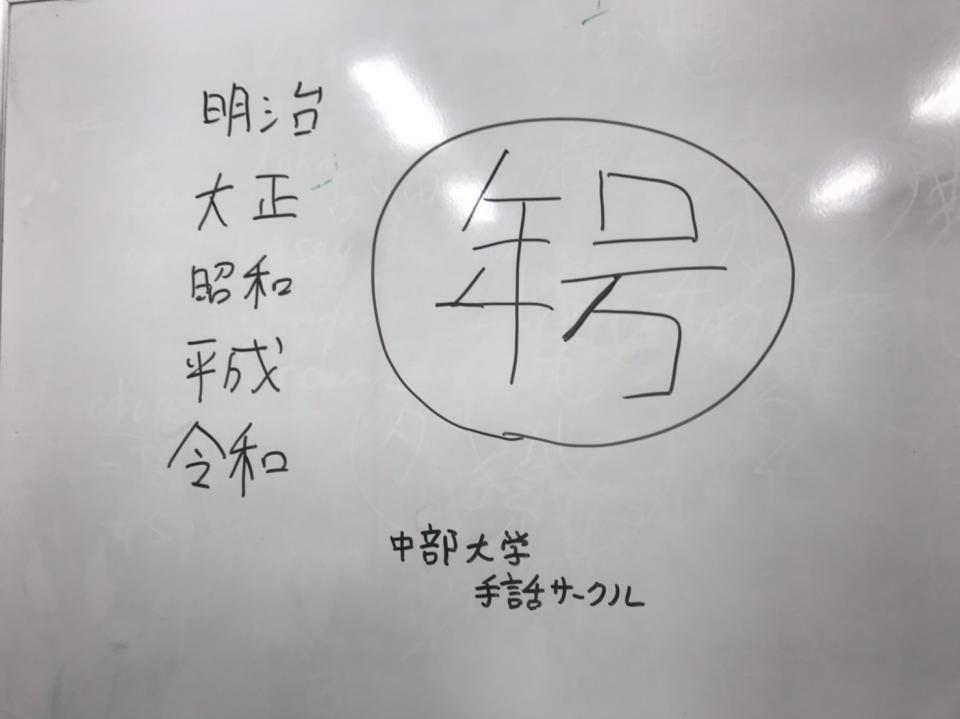 明治
大正
昭和
平成
令和
年号
中部大学
手話サークル